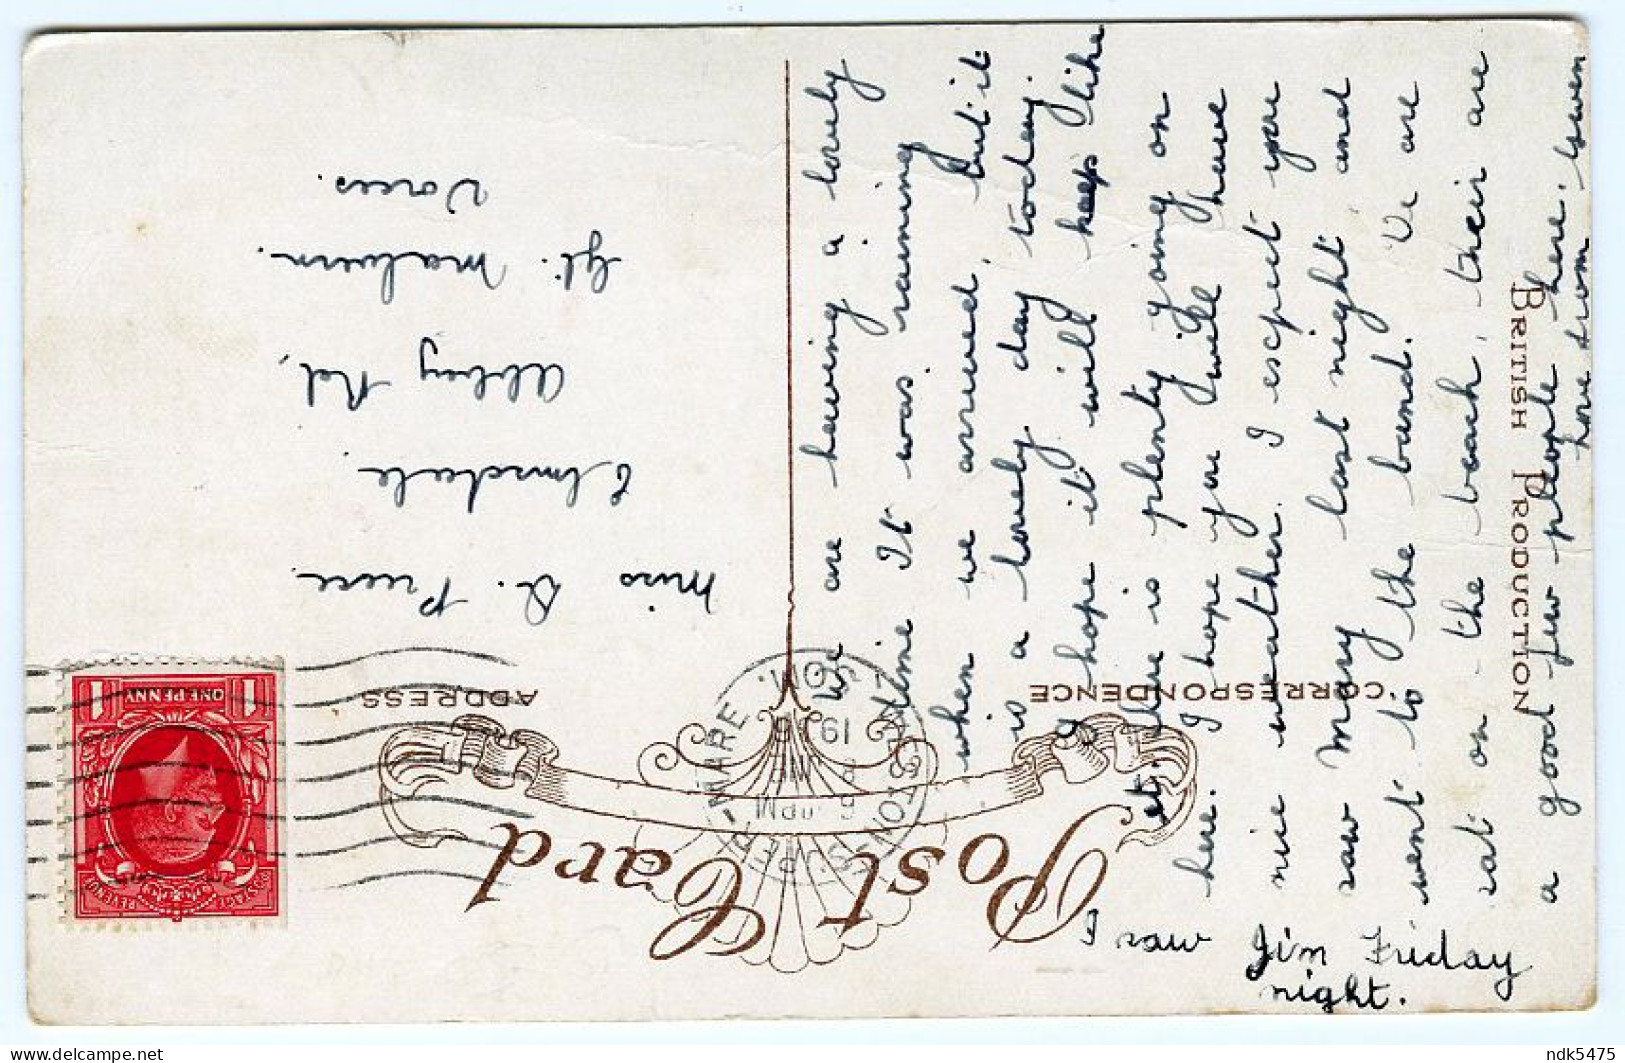 Post Card
CORRESPONDENCE
ADDRESS
BRITISH PRODUCTION
WESTON-SUPER-MARE
SOM.
6 PM
19
POSTAGE REVENUE
1 ONE PENNY 1
Miss D. Preece.
Elmsdale.
Abbey Rd,
Gt. Malvern.
Worcs.
We are having a lovely
time It was raining
when we arrived, but it
is a lovely day today.
hope it will keep like
it. there is plenty going on
here. I hope you will have
nice weather. I escpect you
saw Mary last night and
went to the band. We are
sat on the beach, their are
a good few people here. even
here from
I saw Jim Friday
night.
ndk5475